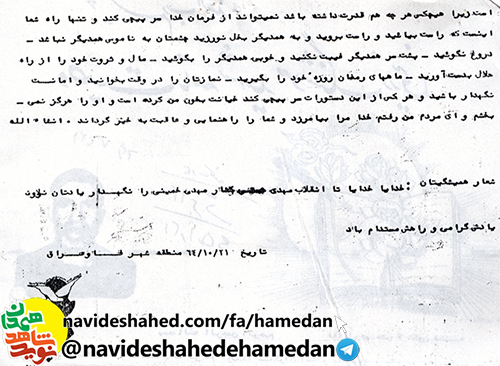 است زیرا هیچکس هر چه هم قدرت داشته باشد نمیتواند از فرمان خدا سر پیچی کند و تنها راه شما
اینست که راست بیائید و راست بروید و به همدیگر بخل نورزید چشمتان به ناموس همدیگر نباشد ـ
دروغ نگوئید ـ پشت سر همدیگر غیبت نکنید و خوبی همدیگر را بگوئید ـ مال و ثروت خود را از راه
حلال بدست آورید ـ ماههای رمضان روزهٔ خود را بگیرید ـ نمازتان را در وقت بخوانید و امانت
نگهدار باشید و هر کس از این دستورات سر پیچی کند خیانت بخون من کرده است و او را هرگز نمی ـ
بخشم و ای مردم من رفتم خدا مرا بیامرزد و شما را راهنمایی و عاقبت به خیر گرداند ٠ انشاء الله
شعار همیشگیتان : خدایا خدایا تا انقلاب مهدی از مهدی خمینی را نگهدار یادتان نرود
یادش گرامی و راهش مستدام باد
تاریخ ۶۴/۱۰/۲۱ منطقه شهر فاو عراق
نوید شاهد همدان
navideshahed.com/fa/hamedan
@navideshahedehamedan